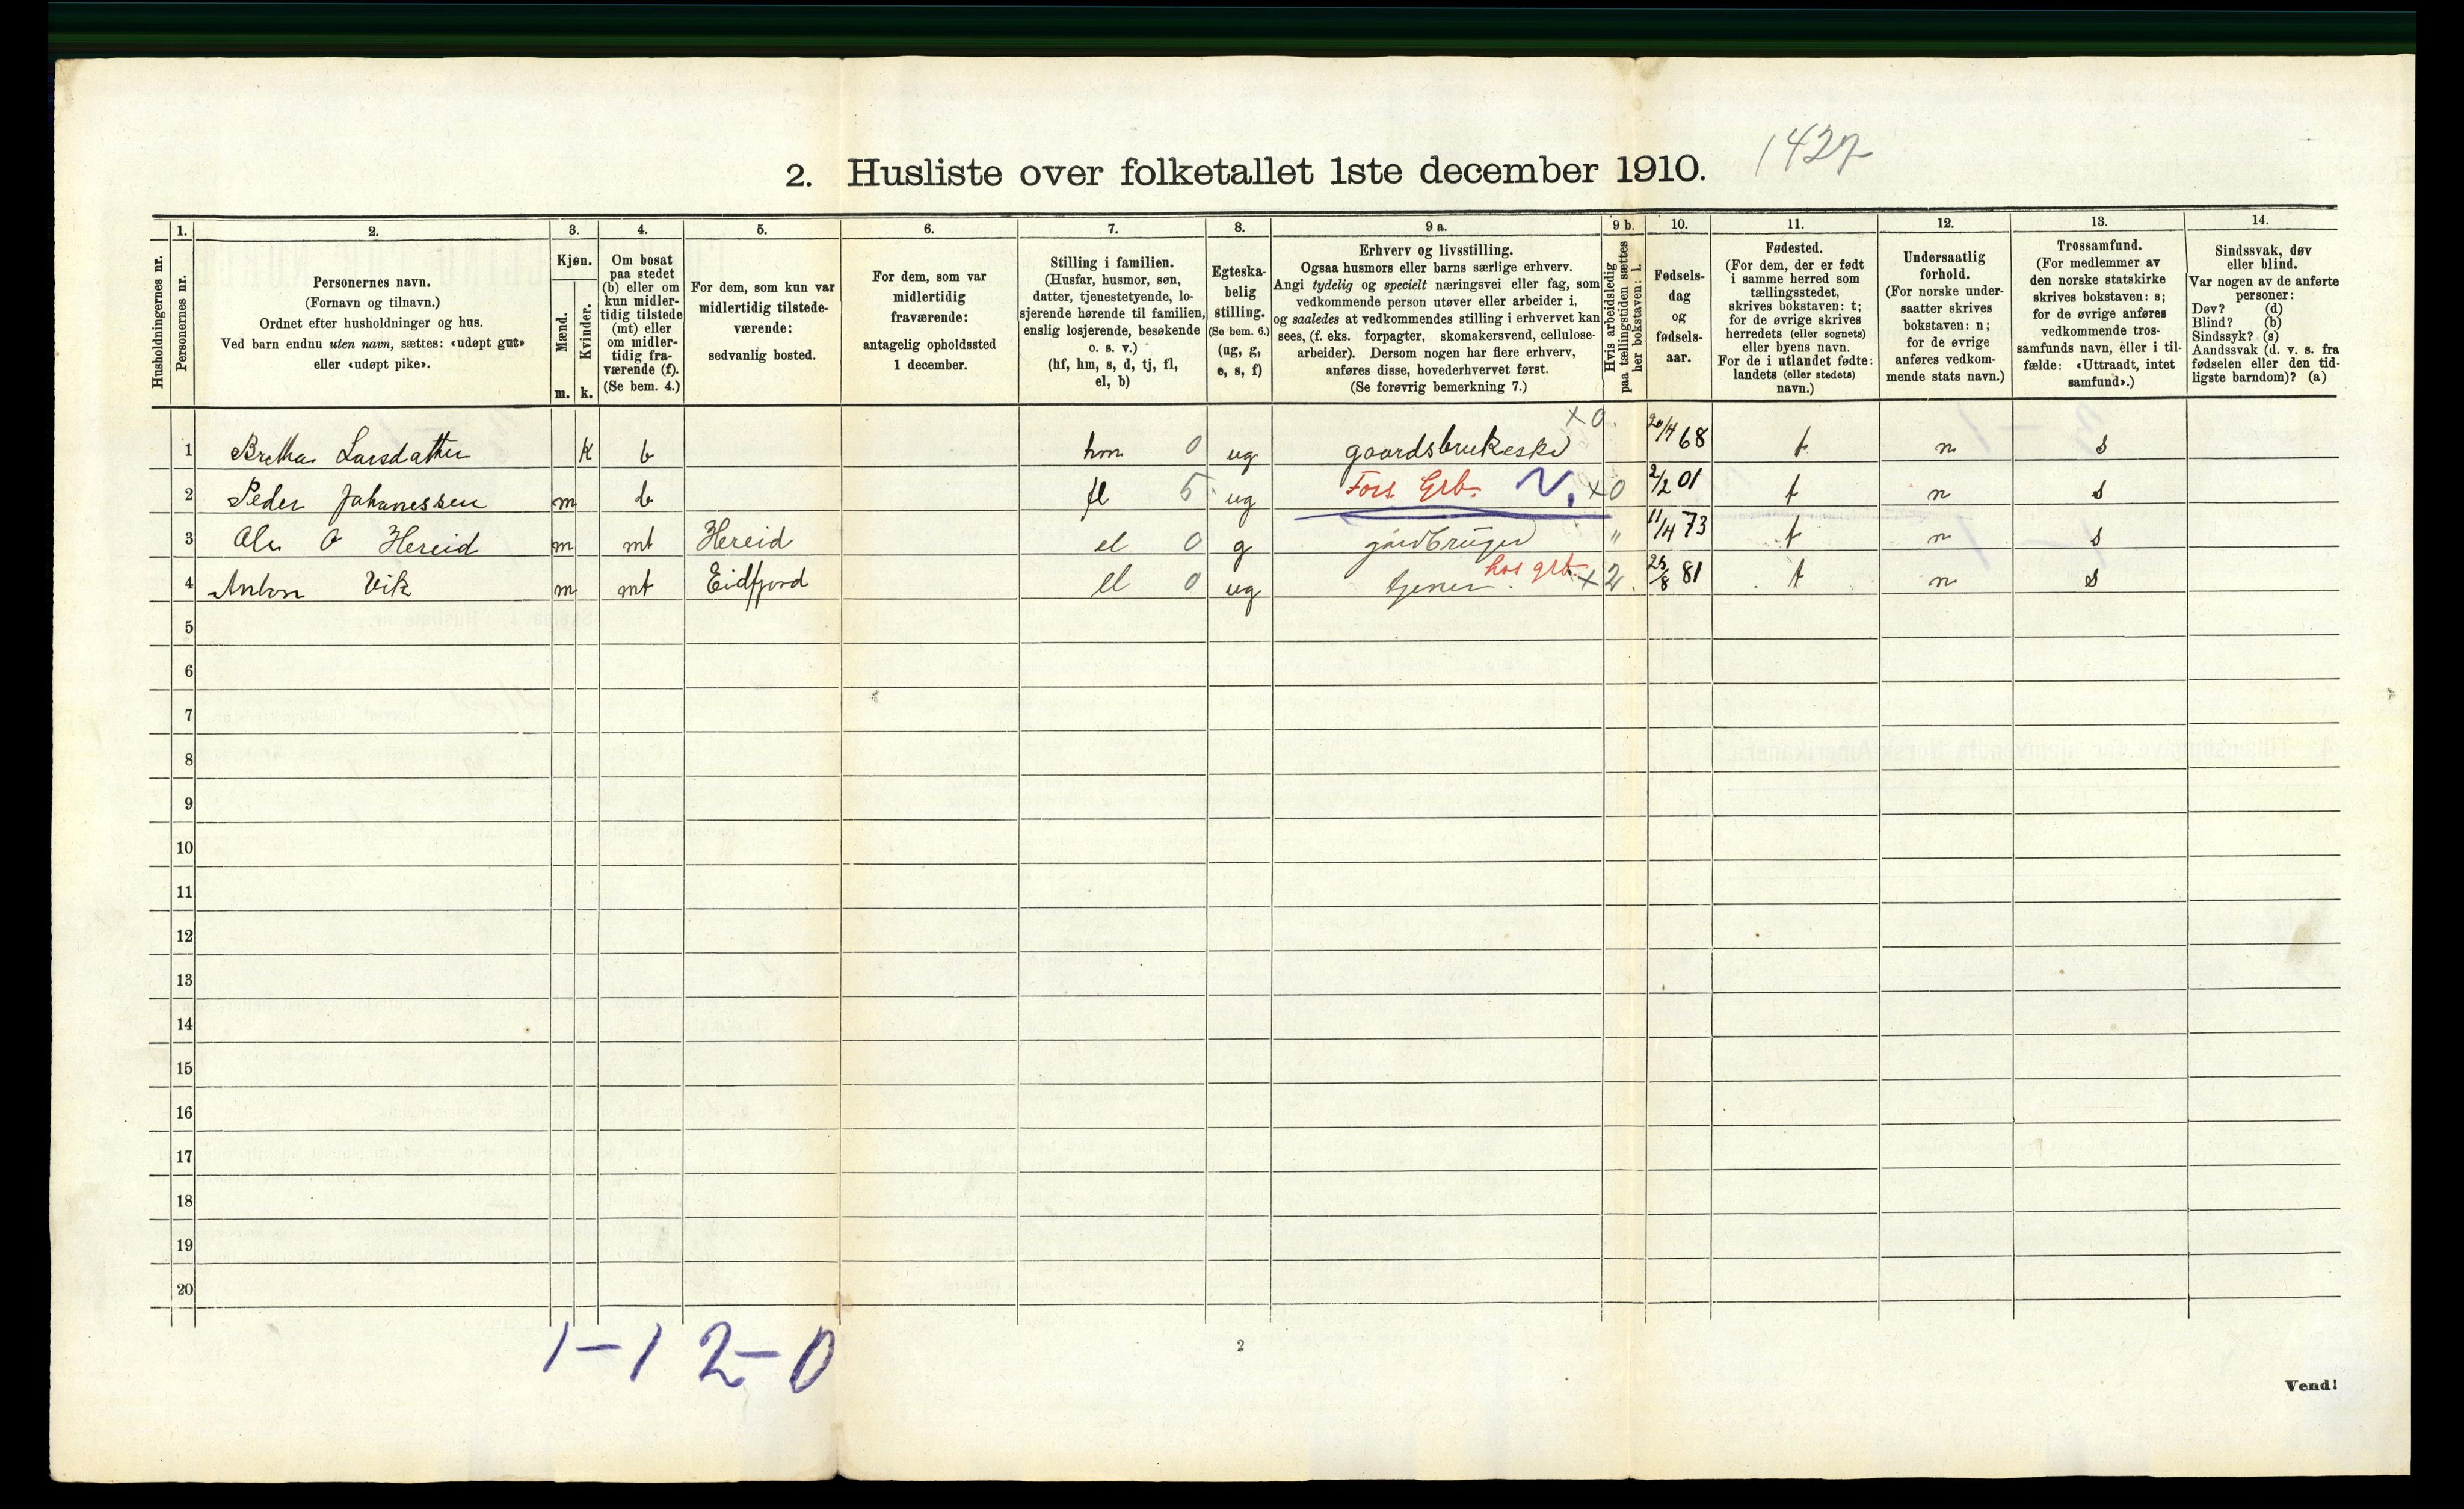 1427
2. Husliste over folketallet 1ste december 1910.
Husholdningernes nr.
1.
Personernes nr.
2.
Personernes navn.
(Fornavn og tilnavn.)
Ordnet efter husholdninger og hus.
Ved barn endnu uten navn, sættes: «udøpt gut»
eller «udøpt pike».
3.
Kjøn.
Mænd.
Kvinder.
m. k.
4.
Om bosat
paa stedet
(b) eller om
kun midler-
tidig tilstede
(mt) eller
om midler-
tidig fra-
værende (f).
(Se bem. 4.)
5.
For dem, som kun var
midlertidig tilstede-
værende:
sedvanlig bosted.
6.
For dem, som var
midlertidig
fraværende:
antagelig opholdssted
1 december.
7.
Stilling i familien.
(Husfar, husmor, søn,
datter, tjenestetyende, lo-
sjerende hørende til familien,
enslig losjerende, besøkende
o. s. v.)
(hf, hm, s, d, tj, fl,
el, b)
8.
Egteska-
belig
stilling.
(Se bem. 6.)
(ug, g,
e, s, f)
9 a.
Erhverv og livsstilling.
Ogsaa husmors eller barns særlige erhverv.
Angi tydelig og specielt næringsvei eller fag, som
vedkommende person utøver eller arbeider i,
og saaledes at vedkommendes stilling i erhvervet kan
sees, (f. eks. forpagter, skomakersvend, cellulose-
arbeider). Dersom nogen har flere erhverv,
anføres disse, hovederhvervet først.
(Se forøvrig bemerkning 7.)
9 b.
Hvis arbeidsledig
paa tællingstiden sættes
her bokstaven: l.
10.
Fødsels-
dag
og
fødsels-
aar.
11.
Fødested.
(For dem, der er født
i samme herred som
tællingsstedet,
skrives bokstaven: t;
for de øvrige skrives
herredets (eller sognets)
eller byens navn.
For de i utlandet fødte:
landets (eller stedets)
navn.)
12.
Undersaatlig
forhold.
(For norske under-
saatter skrives
bokstaven: n;
for de øvrige
anføres vedkom-
mende stats navn.)
13.
Trossamfund.
(For medlemmer av
den norske statskirke
skrives bokstaven: s;
for de øvrige anføres
vedkommende tros-
samfunds navn, eller i til-
fælde: «Uttraadt, intet
samfund».)
14.
Sindssvak, døv
eller blind.
Var nogen av de anførte
personer:
Døv? (d)
Blind? (b)
Sindssyk? (s)
Aandssvak (d. v. s. fra
fødselen eller den tid-
ligste barndom)? (a)
1 Bretha Larsdatter k b hm 0 ug gaardsbrukeske x0 20/4 68 t n s
2 Peder Johanessen m b fl 5 ug Fors. Grb. N. x0 2/2 01 t n s
3 Ole O Hereid m mt Hereid el 0 g gardbruger " 11/4 73 t n s
4 Anton Vik m mt Eidfjord el 0 ug tjener hos grb. x2 25/8 81 t n s
5
6
7
8
9
10
11
12
13
14
15
16
17
18
19
20
1-1 2-0
2
Vend!